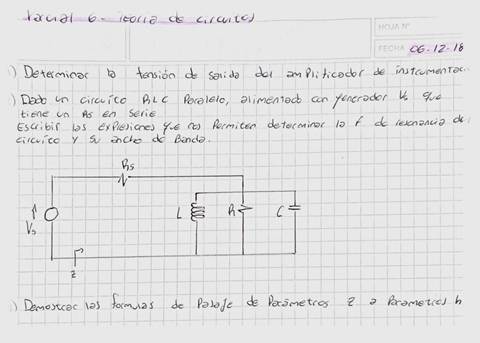 Parcial 6 - teoria de circuitos
HOJA Nº
FECHA 06-12-18
) Determinar la tensión de salida del amplificador de instrumentac.
) Dado un circuito RLC Paralelo, alimentado con generador Vs que
tiene un Rs en serie
Escribir las expresiones que nos permiten determinar la f de resonancia del
circuito y su ancho de Banda.
Rs
Vs
L
R
C
Z
) Demostrar las formulas de Pasaje de Parámetros Z a Parametros h